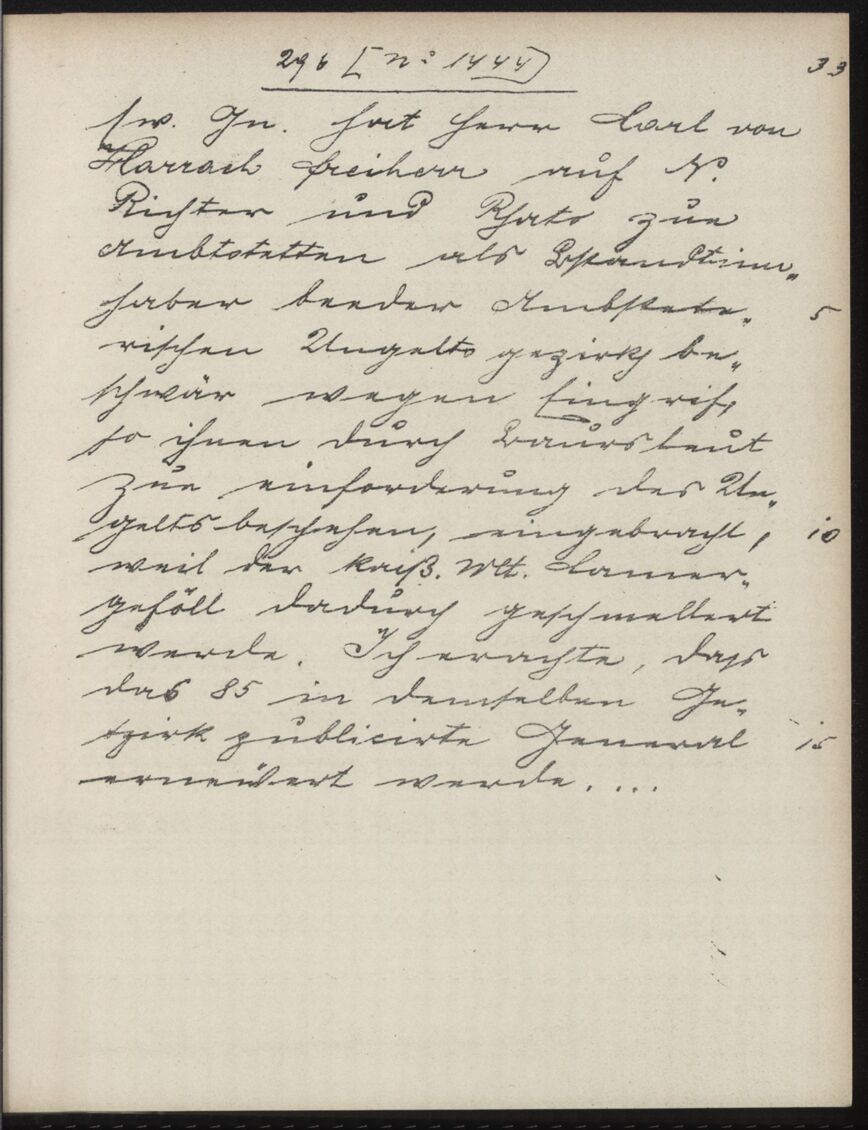 296 [No 1444] 33
Ew. Gn. hat herr Carl von
Harrach freiherr auf N.
Richter und Rhats zue
Ambtstetten als Bstandtinn„
haber beeder Ambstete„ 5
rischen Ungelts gezirkh be„
schwär wegen Eingrif,
so ihnen durch Baursleut
zue einforderung des Un„
gelts beschehen, eingebracht, 10
weil der kaiß. Mt. Camer„
geföll dadurch geschmellert
werde. Ich erachte, dass
das 85 in demselben Ge„
tzirk publicirte General 15
erneüert werde. ...